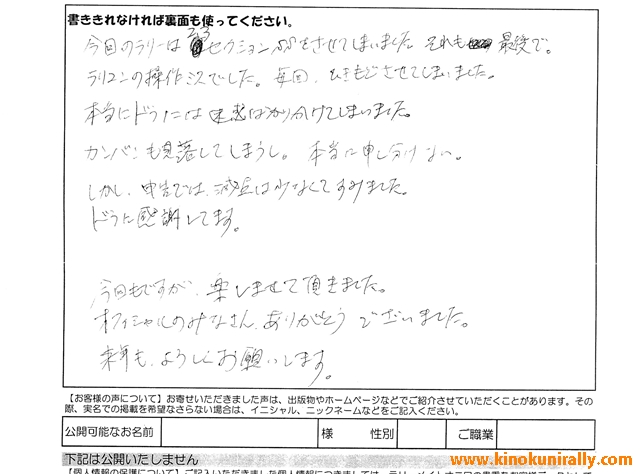 書ききれなければ裏面も使ってください。
2,3
今回のラリーは セクション をさせてしまいました それも 最後で。
ラリコンの操作ミスでした。毎回、ひきもどさせてしまいました。
本当にドラには迷惑ばかり分けてしまいました。
カンバンも見落してしまうし。本当に申し分けない。
しかし、申告では、減点は少なくてすみました。
ドラに感謝してます。
今回もですが、楽しませて頂きました。
オフィシャルのみなさん、ありがとうございました。
来年も、よろしくお願いします。
【お客様の声について】お寄せいただきました声は、出版物やホームページなどでご紹介させていただくことがあります。その
際、実名での掲載を希望なさらない場合は、イニシャル、ニックネームなどをご記入ください。
公開可能なお名前 様 性別 ご職業
下記は公開いたしません
www.kinokunirally.com